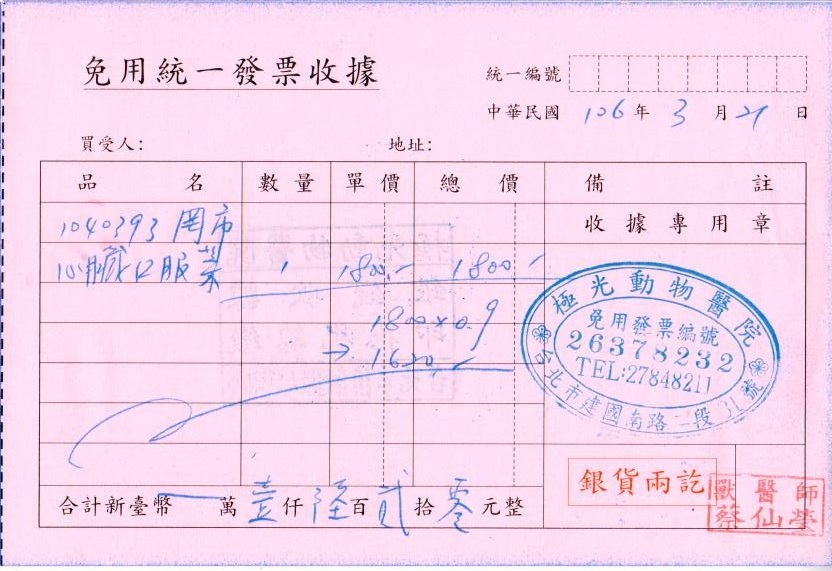 免用統一發票收據
統一編號
中華民國 106年 3月 21日
買受人: 地址:
品名 數量 單價 總價 備註
收據專用章
1040393 罔市
心臟口服藥 1 1800.- 1800.-
1800×0.9
→ 1620.-
極光動物醫院
免用發票編號
26378232
TEL:27848211
台北市建國南路二段31號
銀貨兩訖
獸醫師
蔡仙瑩
合計新臺幣 萬壹仟陸百貳拾零元整